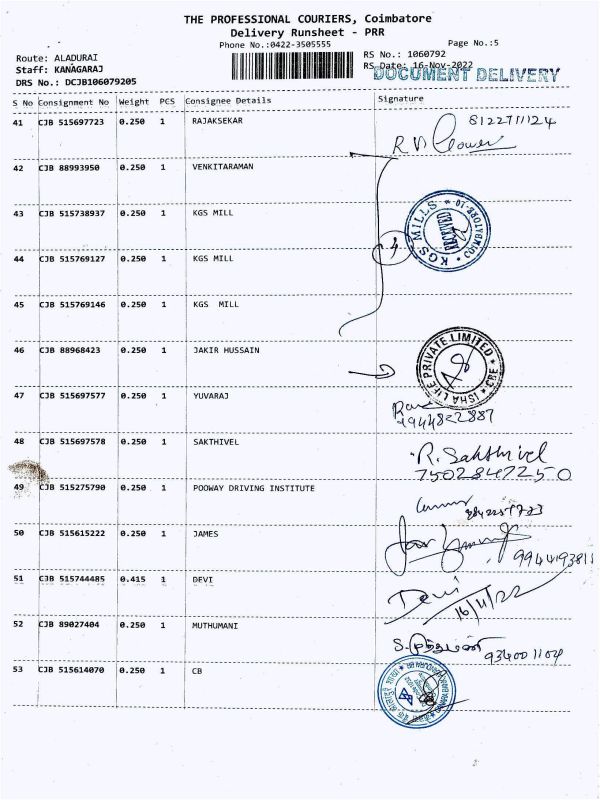 THE PROFESSIONAL COURIERS, Coimbatore
Delivery Runsheet - PRR
Phone No.:0422-3505555
Page No.:5
Route: ALADURAI
RS No.: 1060792
Staff: KANAGARAJ
RS Date: 16-Nov-2022
DOCUMENT DELIVERY
DRS No.: DCJB106079205
S No Consignment No Weight PCS Consignee Details Signature
41 CJB 515697723 0.250 1 RAJAKSEKAR 8122711124
42 CJB 88993950 0.250 1 VENKITARAMAN
43 CJB 515738937 0.250 1 KGS MILL
KGS MILLS * COIMBATORE-10 * RECEIVED
44 CJB 515769127 0.250 1 KGS MILL 4
45 CJB 515769146 0.250 1 KGS MILL
46 CJB 88968423 0.250 1 JAKIR HUSSAIN
ISHA LIFE PRIVATE LIMITED * CBE *
47 CJB 515697577 0.250 1 YUVARAJ
9944822887
48 CJB 515697578 0.250 1 SAKTHIVEL R. Sakthivel
7502847250
49 CJB 515275790 0.250 1 POOWAY DRIVING INSTITUTE
50 CJB 515615222 0.250 1 JAMES
9944193811
51 CJB 515744485 0.415 1 DEVI Devi 16/11/22
52 CJB 89027404 0.250 1 MUTHUMANI S. முத்துமணி 934001104
53 CJB 515614070 0.250 1 CB